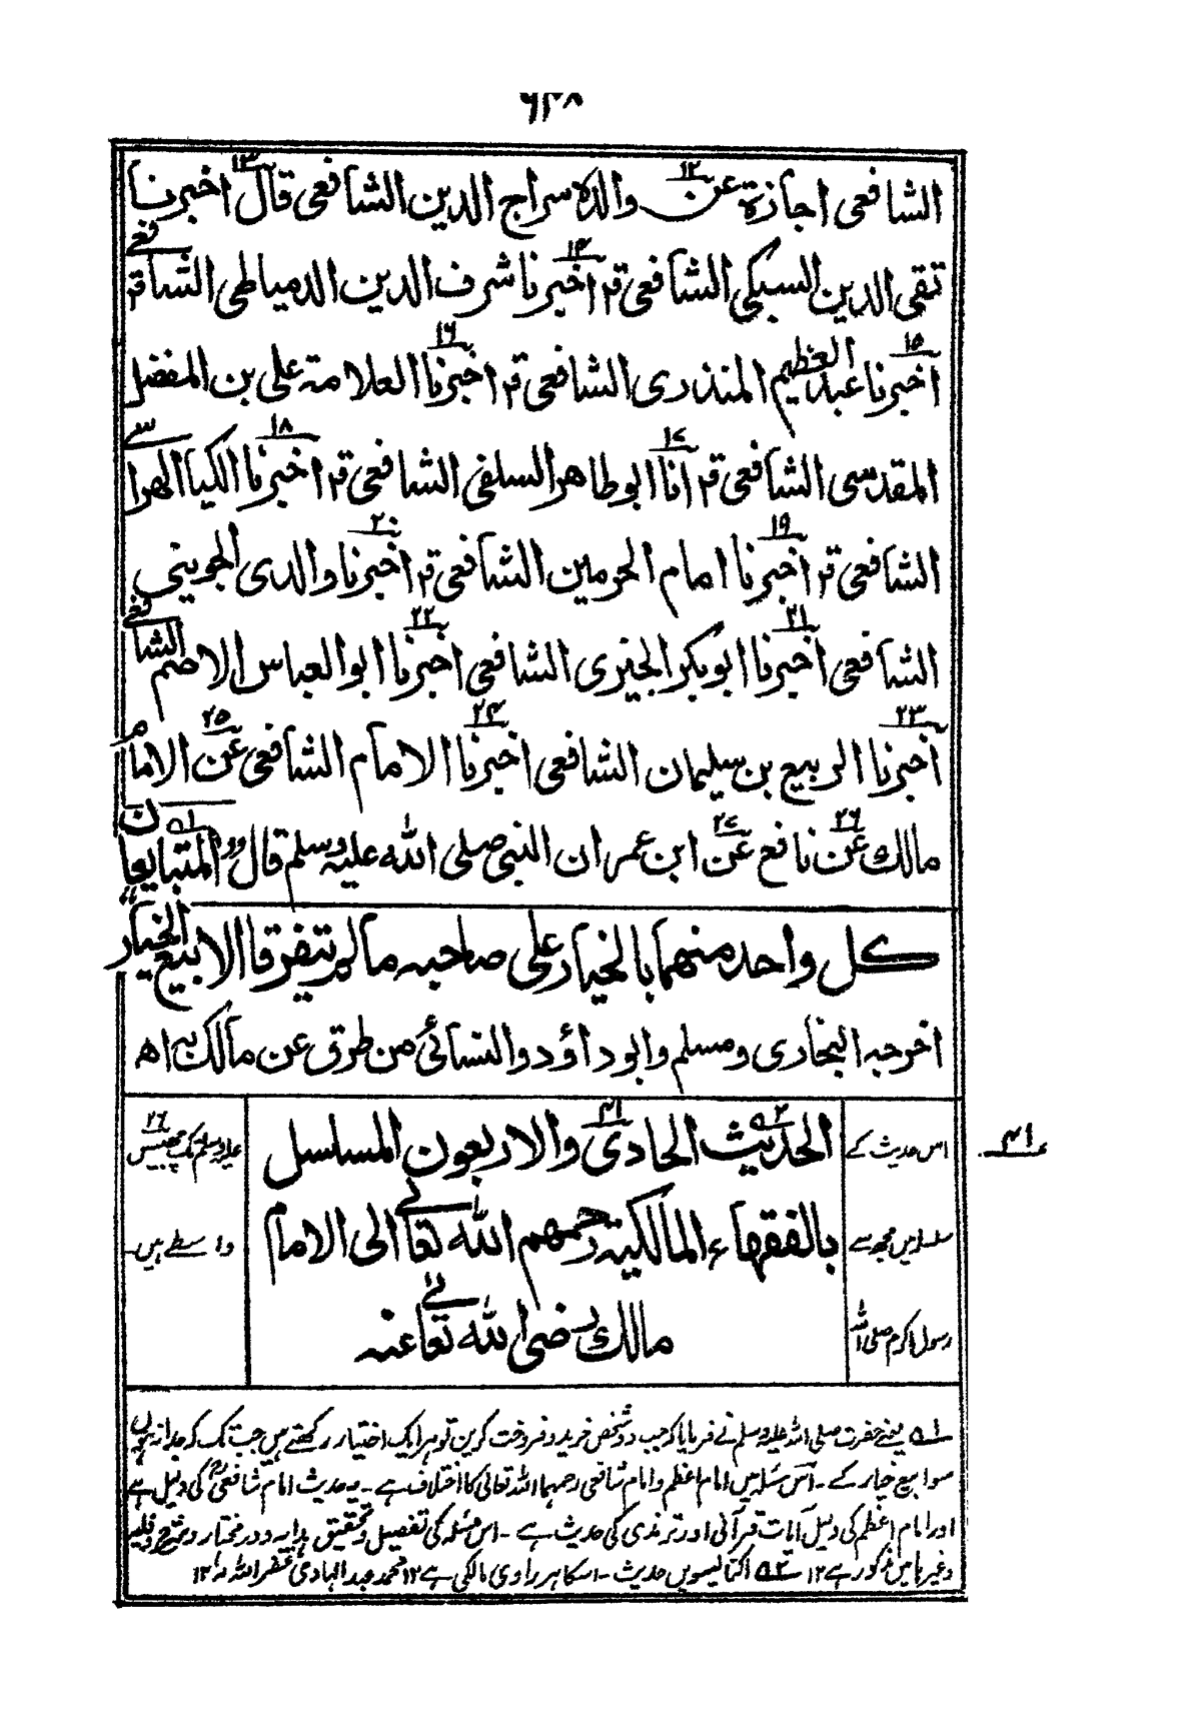 ٦٢٨
الشافعی اجازة عن ١٢ والده سراج الدین الشافعی قال ١٣ اخبرنا
تقی الدین السبکی الشافعی قر ١٤ اخبرنا شرف الدین الدمیاطی الشافعی قر
١٥ اخبرنا عبد العظیم المنذری الشافعی قر ١٦ اخبرنا العلامة علی بن المفضل
المقدسی الشافعی قر ١٧ انا ابو طاهر السلفی الشافعی قر ١٨ اخبرنا الکیا الهراسے
الشافعی قر ١٩ اخبرنا امام الحرمین الشافعی قر ٢٠ اخبرنا والدی الجوینی
الشافعی ٢١ اخبرنا ابو بکر الحیری الشافعی ٢٢ اخبرنا ابو العباس الاصم الشافعے
٢٣ اخبرنا الربیع بن سلیمان الشافعی ٢٤ اخبرنا الامام الشافعی ٢٥ عن الامام
مالک ٢٦ عن نافع ٢٧ عن ابن عمر ان النبی صلی الله علیه وسلم قال المتبایعان ١ه
کل واحد منهما بالخیار علی صاحبه ما لم یتفرقا الا بیع الخیار
اخرجه البخاری ومسلم وابو داؤد والنسائی من طرق عن مالک به اه
٤١
الحدیث ٢ه الحادی ٤١ والاربعون المسلسل
بالفقهاء المالکیة رحمهم الله تعالےٰ الی الامام
مالک رضی الله تعالےٰ عنه
اس حدیث کے
سلسلہ میں مجھ سے
رسول اکرم صلی اللہ
علیہ وسلم تک چھبیس ٢٦
واسطے ہیں
١ه یعنے حضرت صلی اللہ علیہ وسلم نے فرمایا کہ جب دو شخص خرید و فروخت کریں تو ہر ایک اختیار رکھتے ہیں جب تک کہ جدا نہ ہوں
سوا بیع خیار کے ۔ اس مسئلہ میں امام اعظم و امام شافعی رحمہما اللہ تعالی کا اختلاف ہے ۔ یہ حدیث امام شافعی کی دلیل ہے
اور امام اعظم کی دلیل آیات قرآنی اور ترمذی کی حدیث ہے ۔ اس مسئلہ کی تفصیل و تحقیق ہدایہ و در مختار و فتح القدیر
وغیرہا میں مذکور ہے ١٢ ٢ه اکتالیسویں حدیث ۔ اسکا ہر راوی مالکی ہے ١٢ محمد عبد الہادی غفر اللہ لہ ١٢